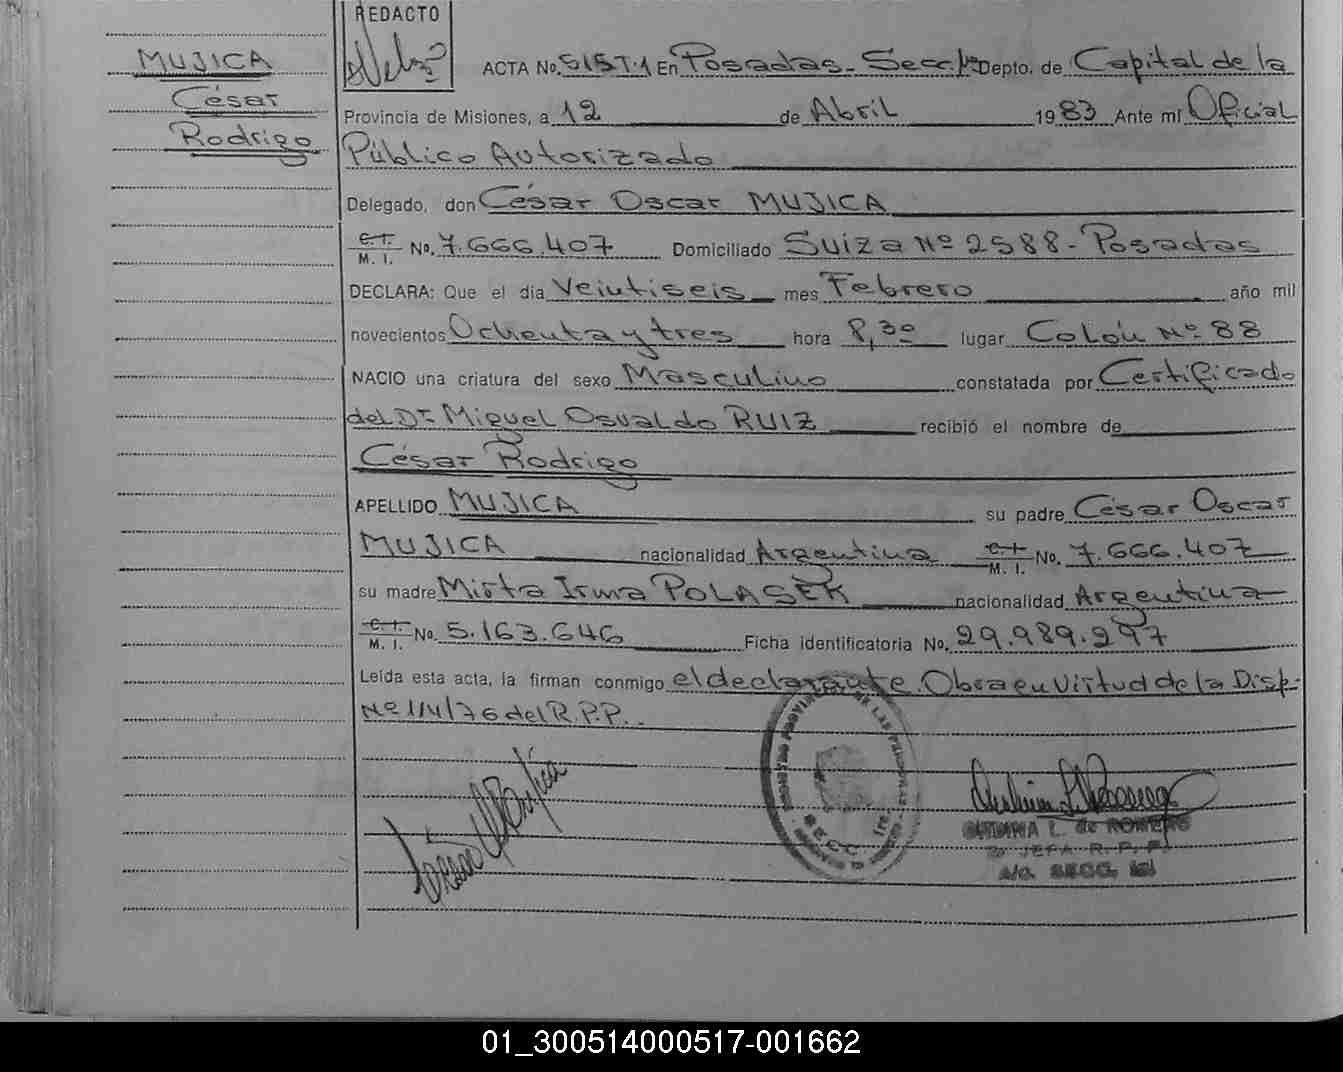 REDACTO
MUJICA
César
Rodrigo
ACTA No. 515T.1 En Posadas - Secc. 1ra Depto. de Capital de la
Provincia de Misiones, a 12 de Abril 1983 Ante mí Oficial
Público Autorizado
Delegado, don César Oscar MUJICA
C.I. M.I. No. 7.666.407 Domiciliado Suiza Nº 2588 - Posadas
DECLARA: Que el día Veintiseis mes Febrero año mil
novecientos Ochenta y tres hora 8,30 lugar Colón Nº 88
NACIO una criatura del sexo Masculino constatada por Certificado
del Dr. Miguel Osvaldo RUIZ recibió el nombre de
César Rodrigo
APELLIDO MUJICA su padre César Oscar
MUJICA nacionalidad Argentina C.I. M.I. No. 7.666.407
su madre Mirta Irma POLASEK nacionalidad Argentina
C.I. M.I. No. 5.163.646 Ficha identificatoria No. 29.989.297
Leída esta acta, la firman conmigo el declarante. Obra en Virtud de la Disp.
Nº 114/76 del R.P.P.
SECC. 1ra
L. de ROMERO
JEFA R. P. P.
A/C. SECC. 1ra
01_300514000517-001662